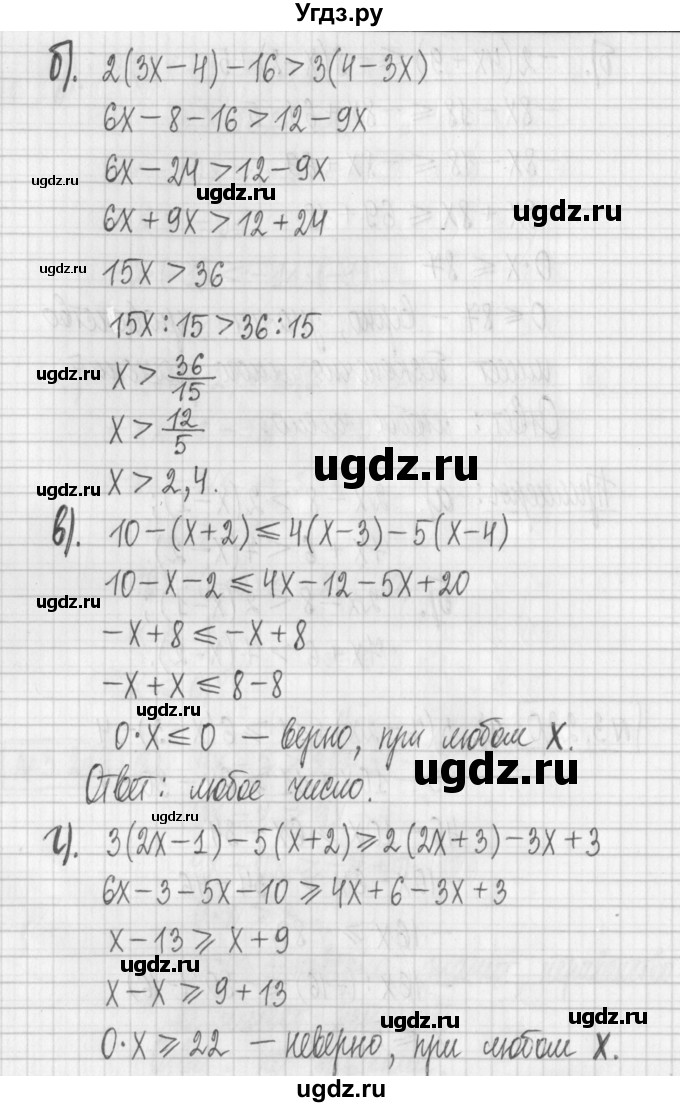 Угдз.ру
б). 2(3x-4)-16>3(4-3x)
6x-8-16>12-9x
6x-24>12-9x
ugdz.ru
ugdz.ru
ugdz.ru
6x+9x>12+24
15x>36
ugdz.ru
15x:15>36:15
x>36/15
ugdz.ru
x>12/5
ugdz.ru
x>2,4.
ugdz.ru
в). 10-(x+2)⩽4(x-3)-5(x-4)
10-x-2⩽4x-12-5x+20
ugdz.ru
-x+8⩽-x+8
-x+x⩽8-8
ugdz.ru
0·x⩽0 — верно, при любом x.
Ответ: любое число.
ugdz.ru
ugdz.ru
г). 3(2x-1)-5(x+2)⩾2(2x+3)-3x+3
6x-3-5x-10⩾4x+6-3x+3
x-13⩾x+9
ugdz.ru
x-x⩾9+13
ugdz.ru
0·x⩾22 — неверно, при любом x.
ugdz.ru